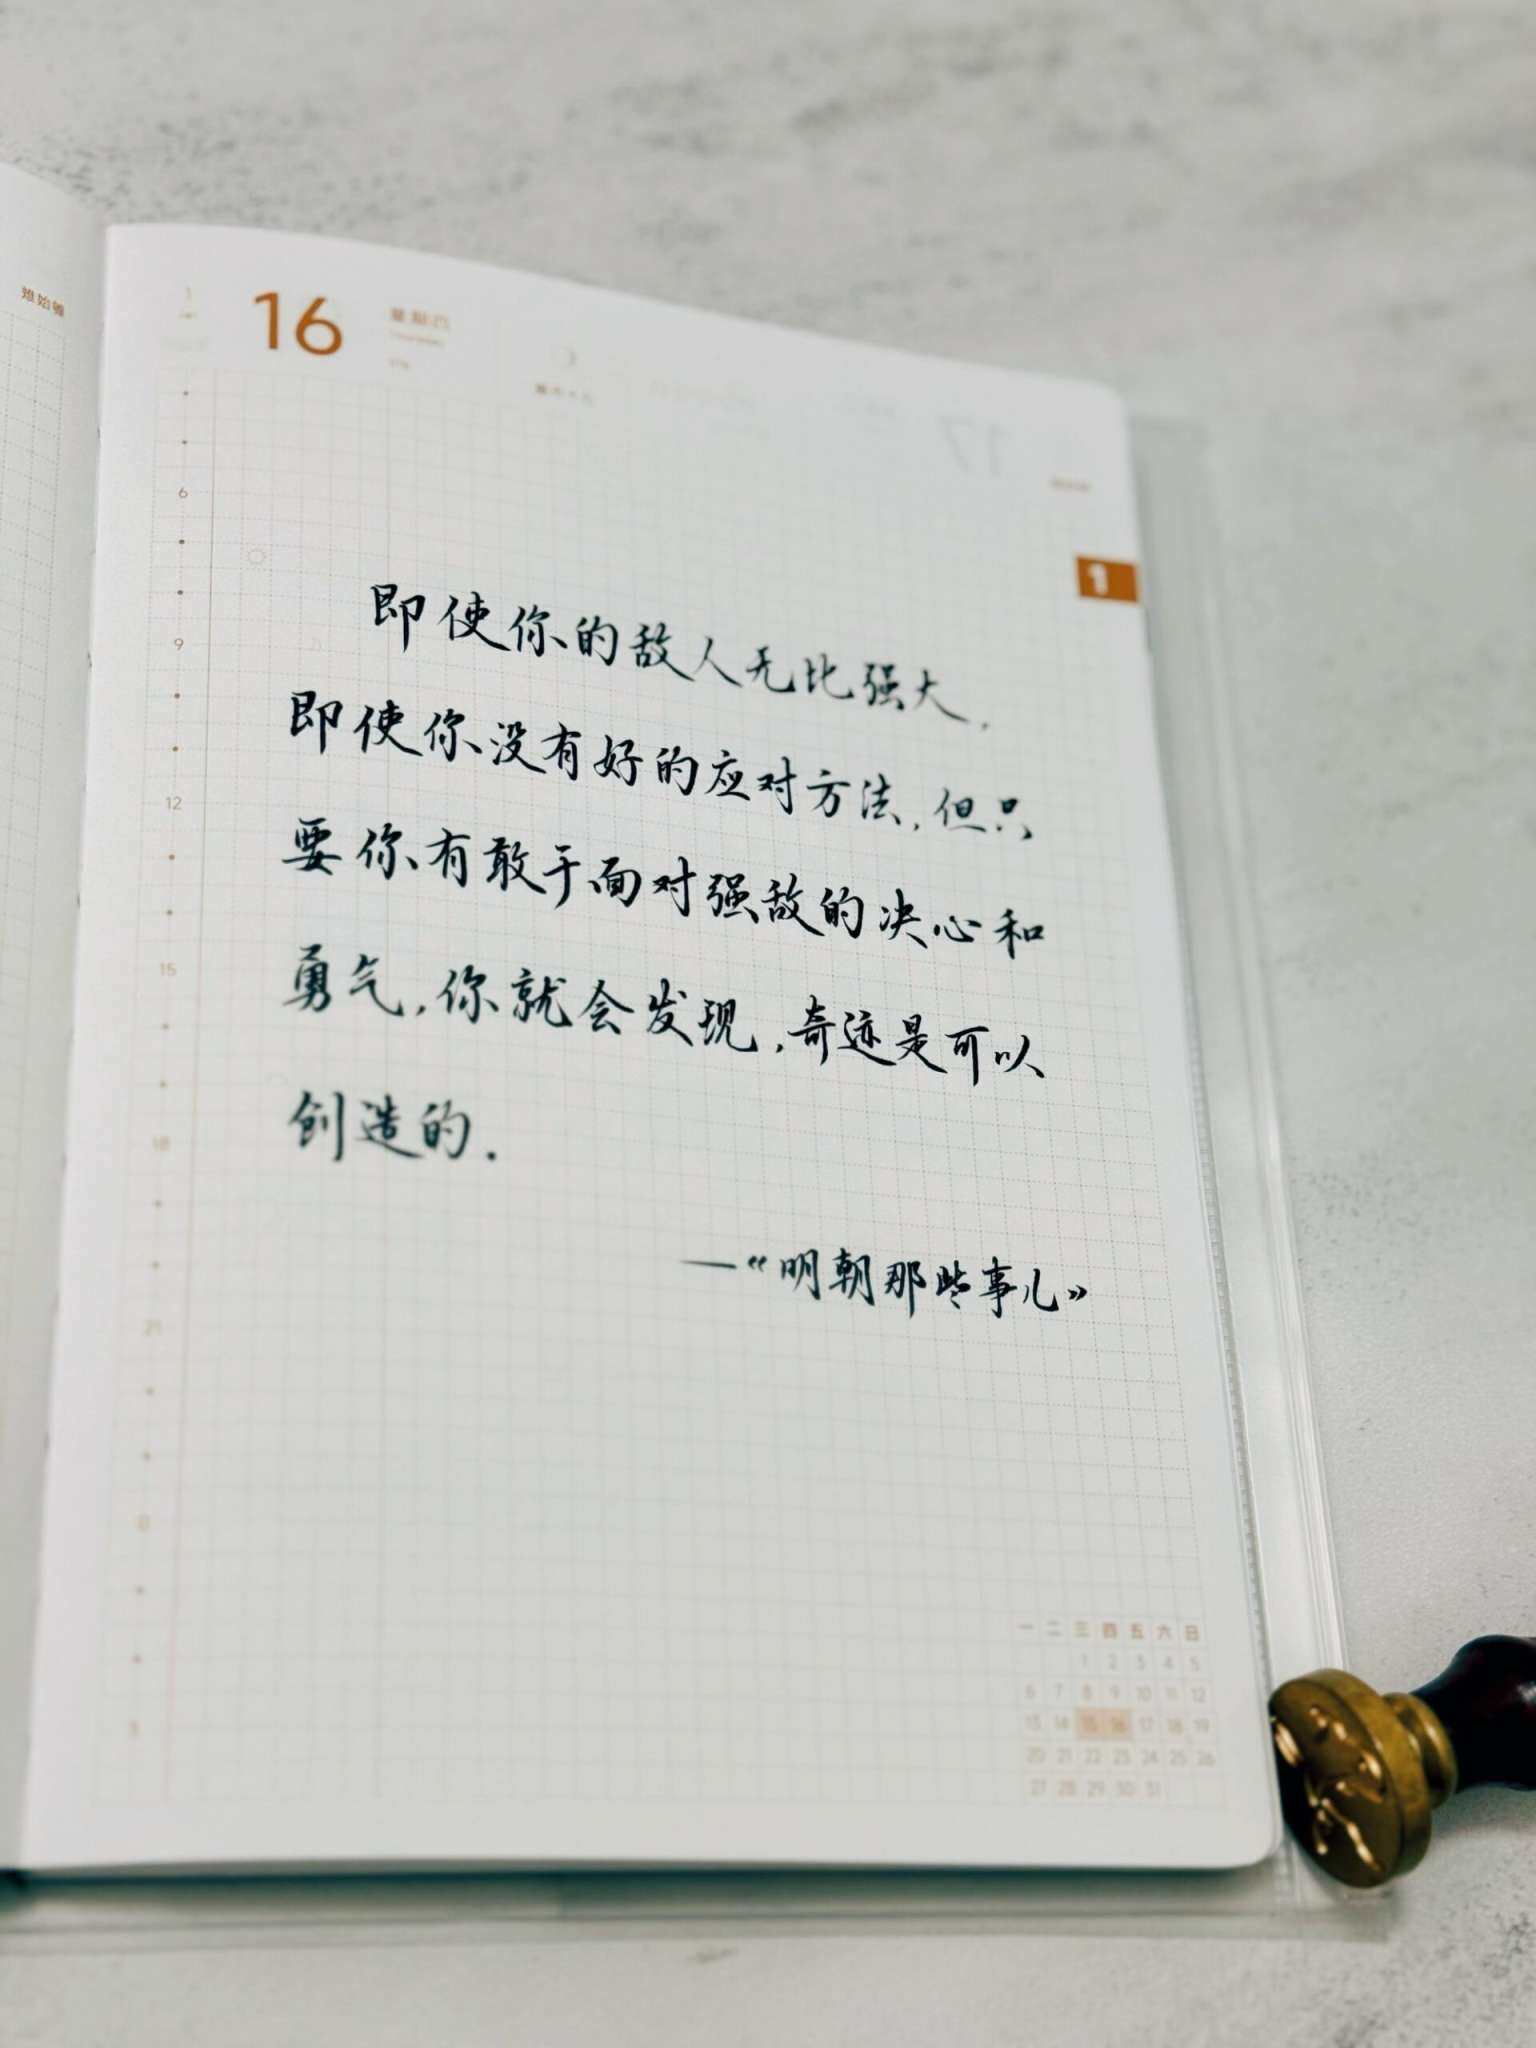 雏始雊
1
16
星期四
Thursday
17
6
9
12
15
18
21
0
3
1
即使你的敌人无比强大,
即使你没有好的应对方法,但只
要你有敢于面对强敌的决心和
勇气,你就会发现,奇迹是可以
创造的.
—《明朝那些事儿》
一 二 三 四 五 六 日
1 2 3 4 5
6 7 8 9 10 11 12
13 14 15 16 17 18 19
20 21 22 23 24 25 26
27 28 29 30 31